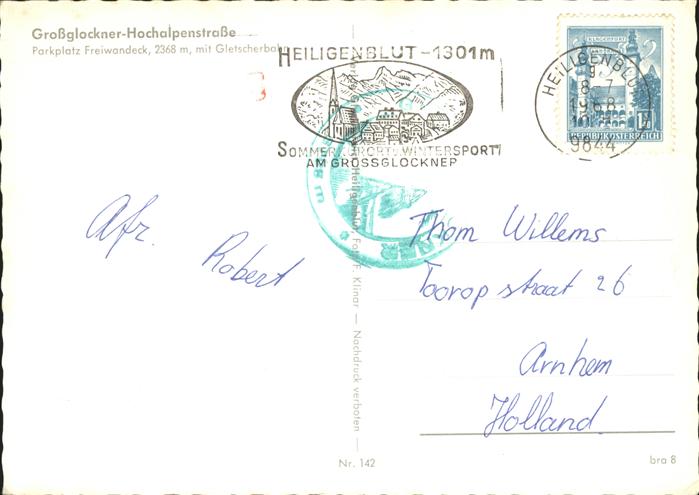 Großglockner-Hochalpenstraße
Parkplatz Freiwandeck, 2368 m, mit Gletscherbahn
HEILIGENBLUT – 1301 m
SOMMER KURORT WINTERSPORT
AM GROSSGLOCKNER
KLAGENFURT
REPUBLIK ÖSTERREICH
HEILIGENBLUT
8-7
1968
9844
Afr.
Robert
Thom Willems
Toorop straat 26
Arnhem
Holland.
Heiligenblut, Foto F. Klinar — Nachdruck verboten
Nr. 142
bra 8